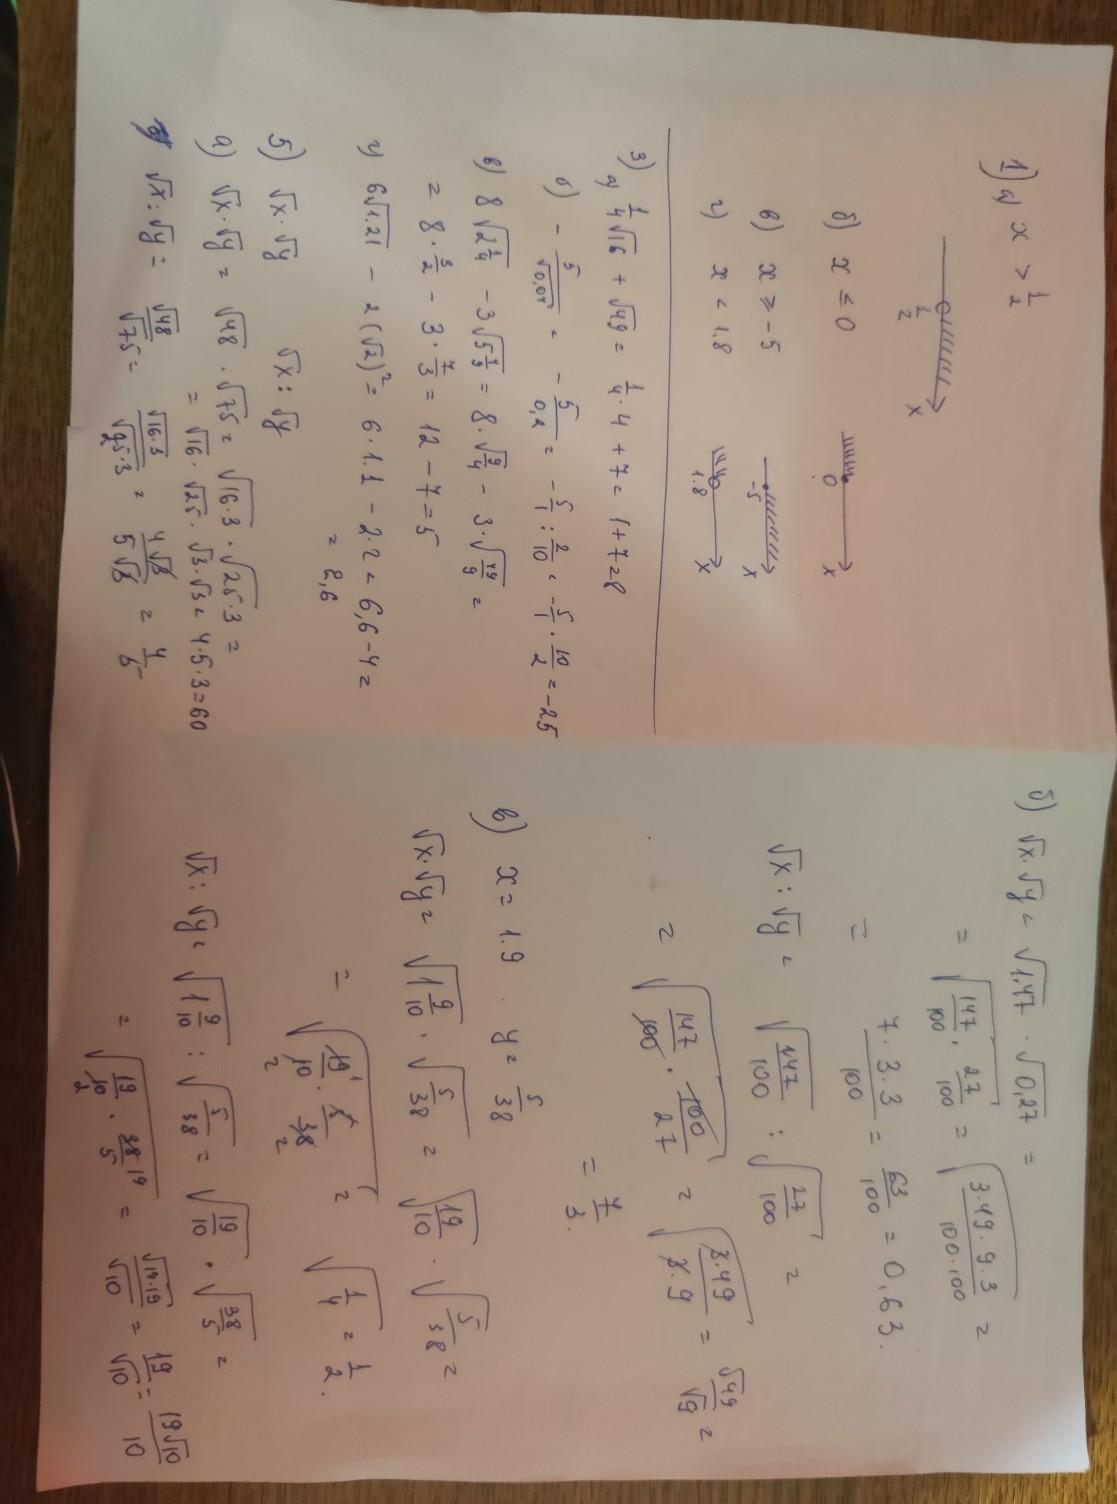 1) а) x > 1/2
1/2 x
б) x ≤ 0
0 x
в) x ≥ -5
-5 x
г) x < 1.8
1.8 x
3) а) 1/4 √16 + √49 = 1/4 · 4 + 7 = 1 + 7 = 8
б) - 5/√0,04 = - 5/0,2 = - 5/1 : 2/10 = - 5/1 · 10/2 = -25
в) 8 √2 1/4 - 3 √5 4/9 = 8 · √9/4 - 3 · √49/9 =
= 8 · 3/2 - 3 · 7/3 = 12 - 7 = 5
г) 6√1.21 - 2(√2)² = 6 · 1.1 - 2 · 2 = 6,6 - 4 =
= 2,6
5) √x · √y √x : √y
а) √x · √y = √48 · √75 = √16·3 · √25·3 =
= √16 · √25 · √3 · √3 = 4 · 5 · 3 = 60
√x : √y = √48/√75 = √16·3/√25·3 = 4√3/5√3 = 4/5
б) √x · √y = √1,47 · √0,27 =
= √147/100 · 27/100 = √3·49·9·3/100·100 =
= 7·3·3/100 = 63/100 = 0,63.
√x : √y = √147/100 : √27/100 =
= √147/100 · 100/27 = √3·49/3·9 = √49/√9 =
= 7/3.
в) x = 1.9 y = 5/38
√x · √y = √1 9/10 · √5/38 = √19/10 · √5/38 =
= √19/10 · 5/38 = √1/4 = 1/2.
√x : √y = √1 9/10 : √5/38 = √19/10 · √38/5 =
= √19/10 · 38/5 = √19·19/√10 = 19/√10 = 19√10/10